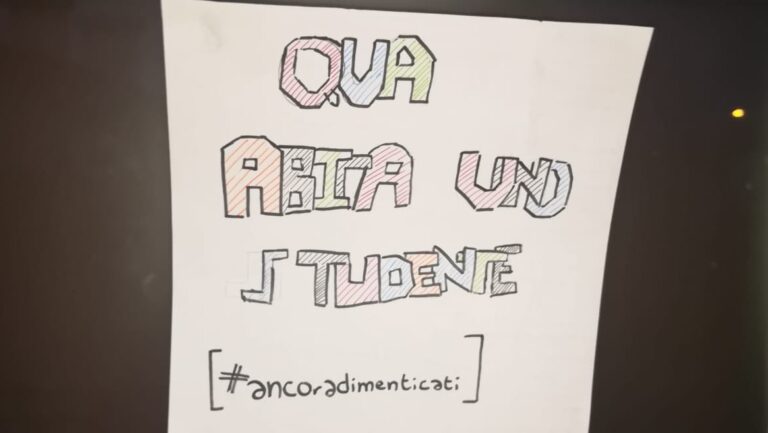 QUA
ABITA UNO
STUDENTE
[#ancoradimenticati]